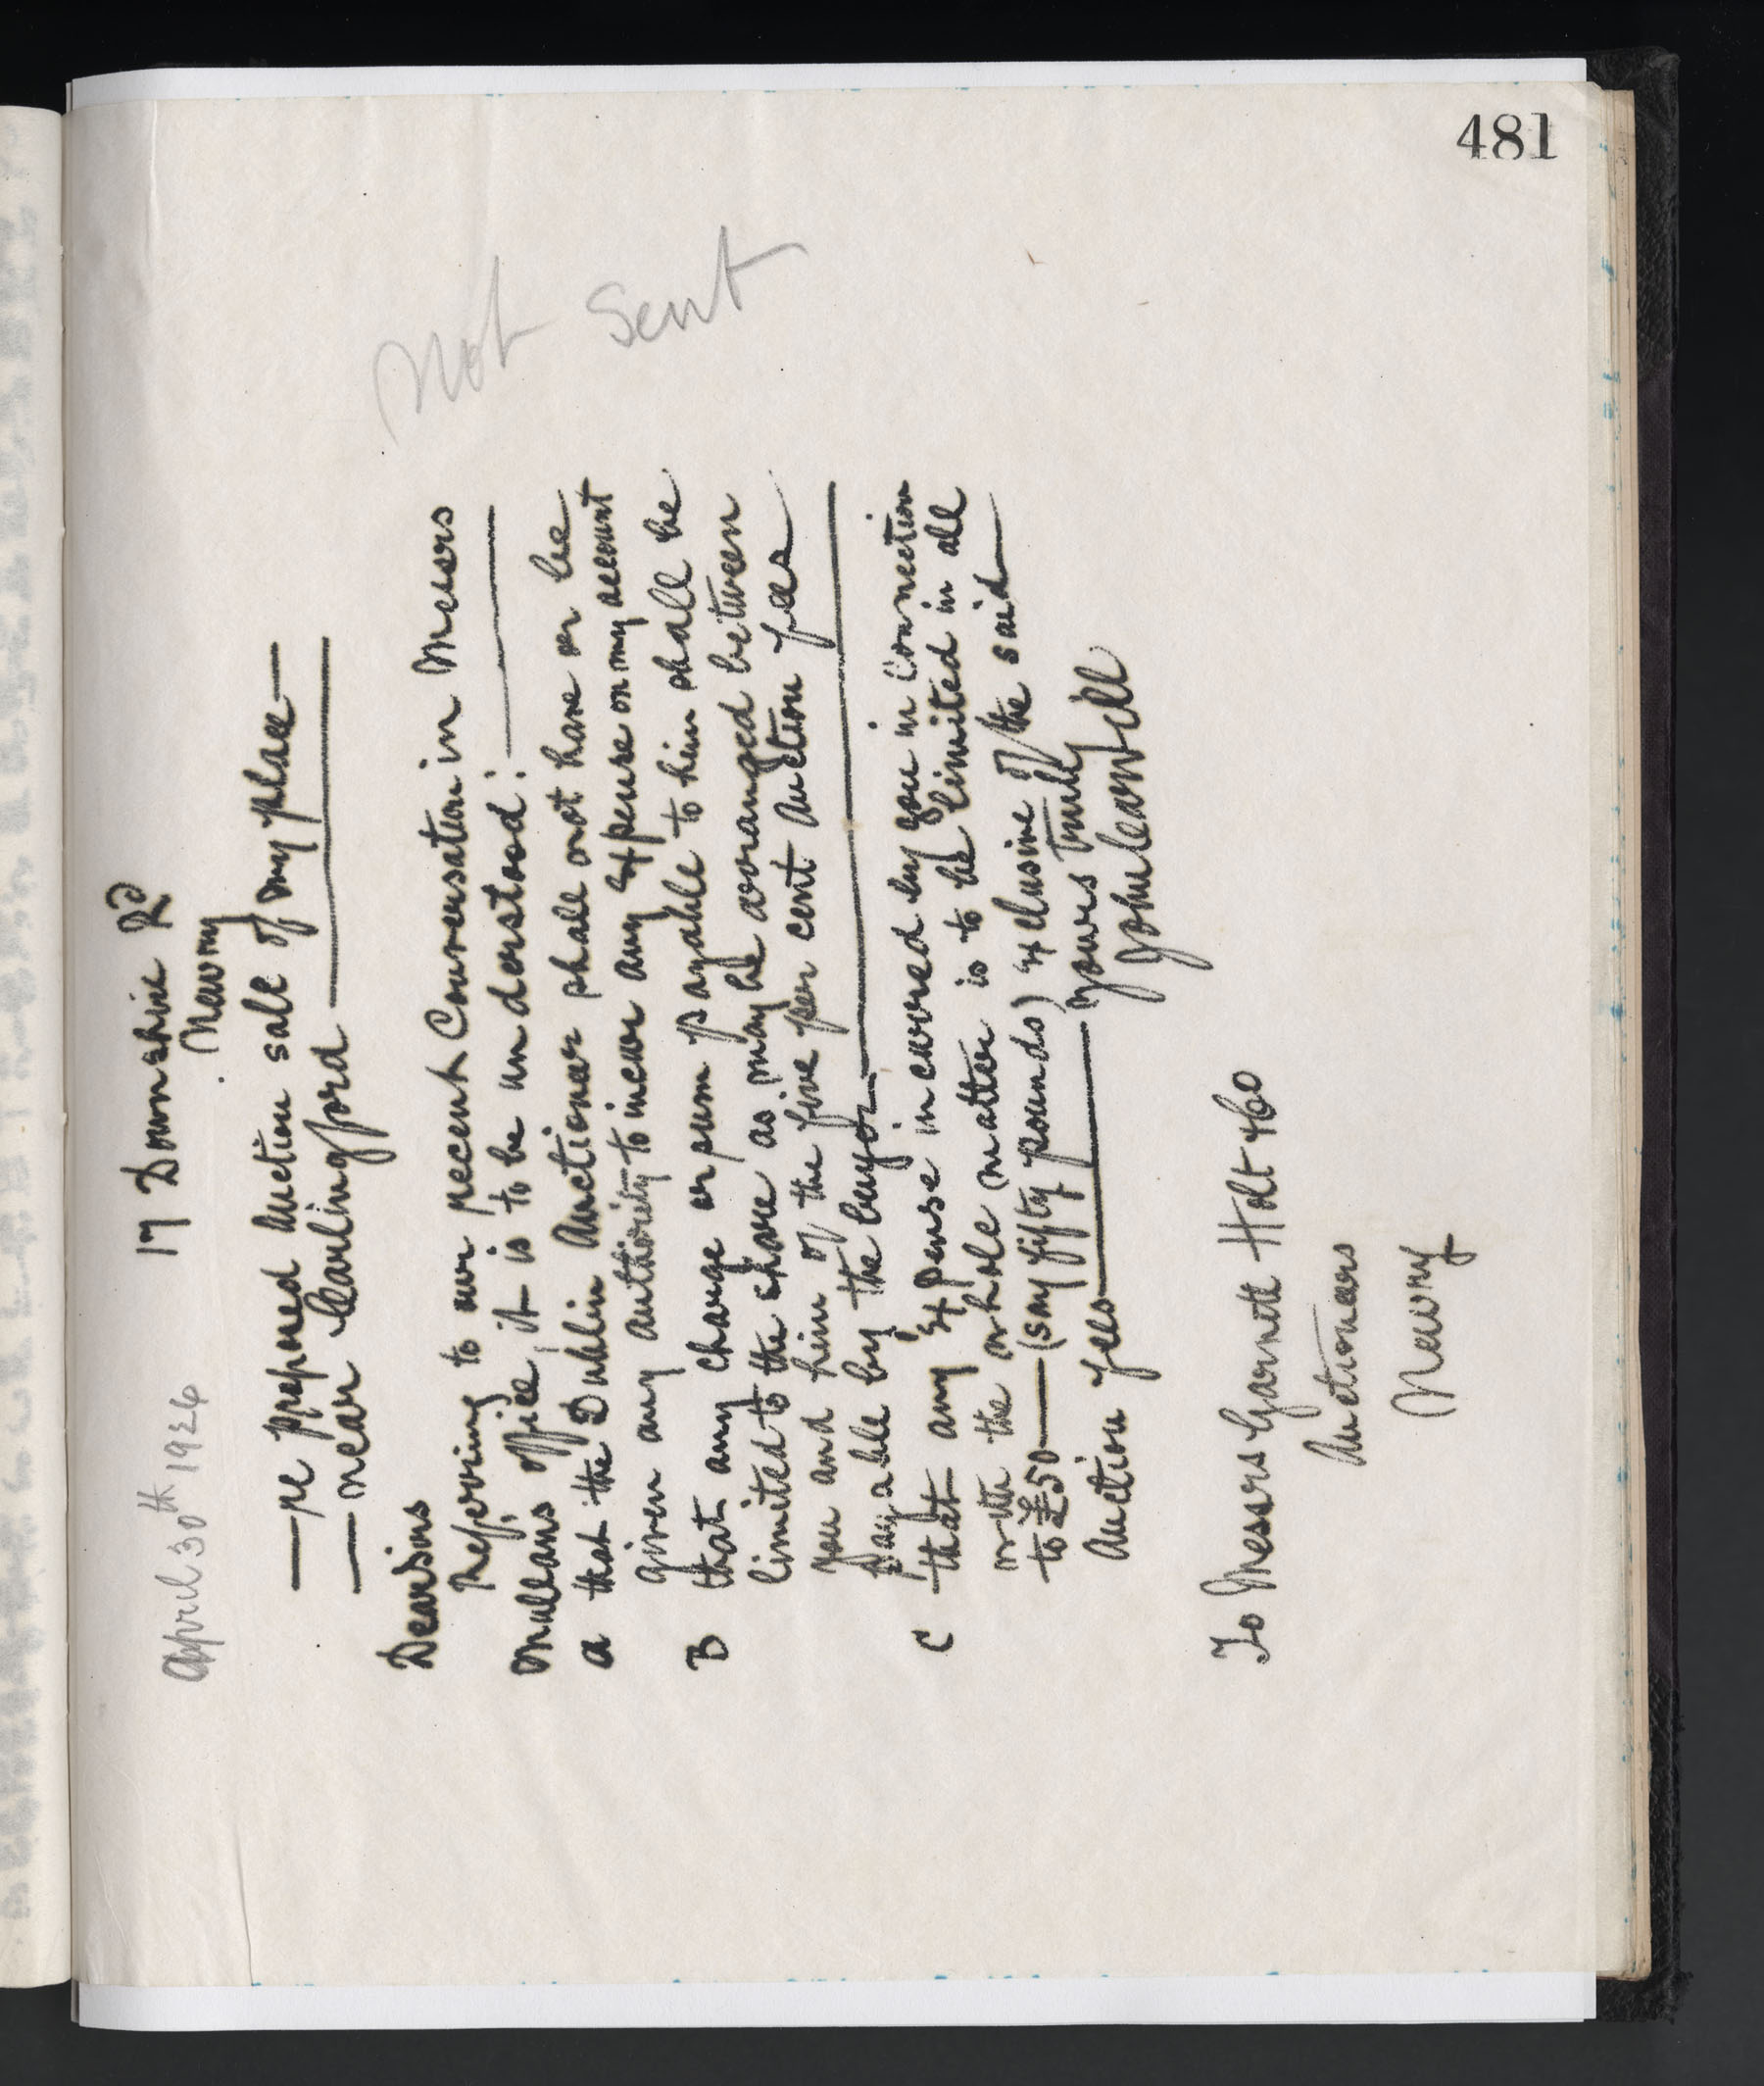 481
17 Downshire Rd
Newry
April 30th 1924
— re proposed Auction sale of my place —
— near Carlingford —
Dear Sirs
Referring to our recent Conversation in Messrs
Mullans office, it is to be understood: —
a that the Dublin Auctioneer shall not have or be
given any authority to incur any Expense on my account
B that any charge or sum payable to him shall be
limited to the share as may be arranged between
you and him of the five per cent Auction fees
payable by the buyer —
C that any Expense incurred by you in Connection
with the whole matter is to be limited in all
to £50 — (say fifty pounds) exclusive of the said
Auction fees — yours truly
John
To Messrs Garnett Holt & Co
Auctioneers
Newry
Not Sent